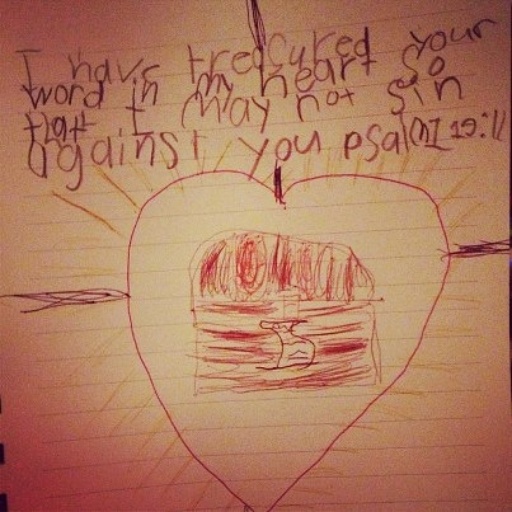 I have treasured your
word in my heart so
that I may not sin
against you psalm 119:11